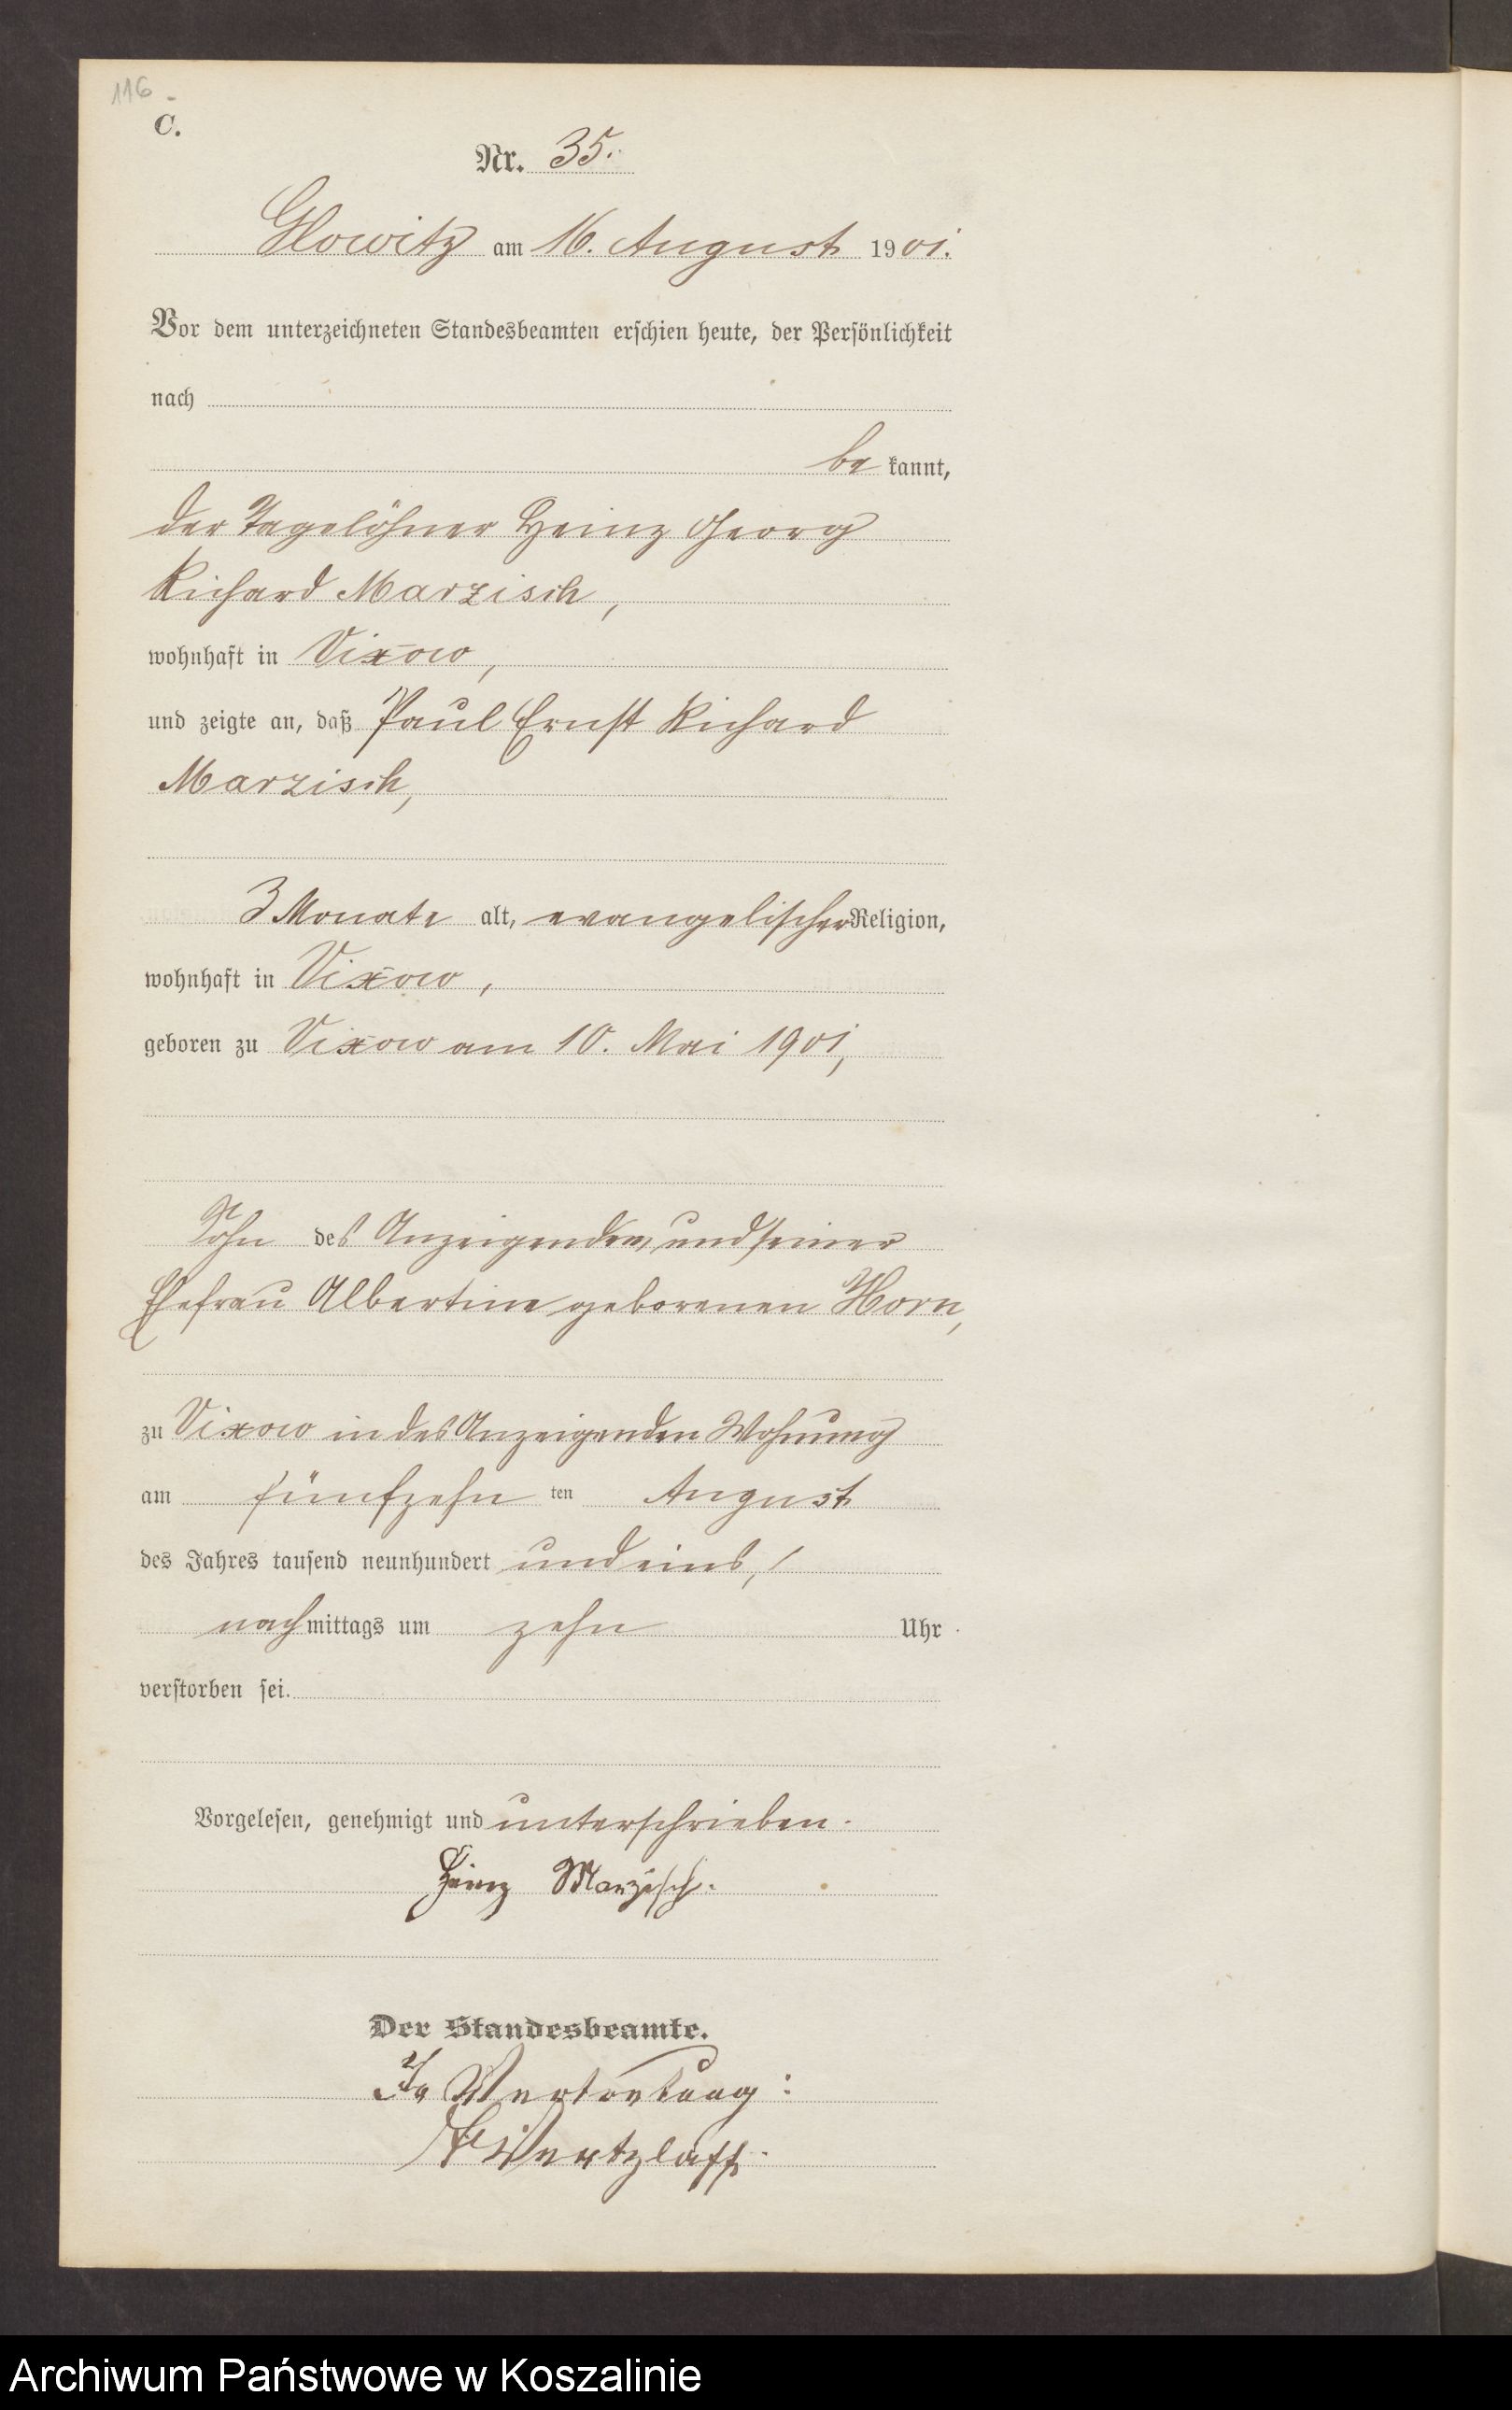 116
C.
Nr. 35.
Glowitz am 16. August 1901.
Vor dem unterzeichneten Standesbeamten erschien heute, der Persönlichkeit
nach
be kannt,
der Tagelöhner Heinz Georg
Richard Marzisch,
wohnhaft in Vixow,
und zeigte an, daß Paul Ernst Richard
Marzisch,
3 Monate alt, evangelischer Religion,
wohnhaft in Vixow,
geboren zu Vixow am 10. Mai 1901,
Sohn des Anzeigenden, und seiner
Ehefrau Albertine geborenen Horn,
zu Vixow in des Anzeigenden Wohnung
am fünfzehn ten August
des Jahres tausend neunhundert und eins,
nachmittags um zehn Uhr
verstorben sei.
Vorgelesen, genehmigt und unterschrieben.
Heinz Marzisch.
Der Standesbeamte.
In Vertretung:
Wertzlaff.
Archiwum Państwowe w Koszalinie